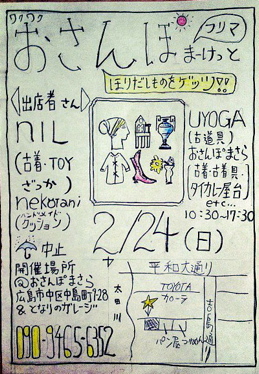 ワクワク
おさんぽ
フリマ
まーけっと
ほりだしものをゲッツ!!
〈出店者さん〉
nIL
(古着・TOY
ざっか)
nekotani
(ハンドメイド
クッション)
UYOGA
(古道具)
おさんぽまさら
(古着・古具・
タイカレー屋台)
etc...
10:30~17:30
2/24(日)
中止
開催場所
@おさんぽまさら
広島市中区中島町9.28
&となりのガレージ
090-9465-6352
平和大通り
太田川
TOYOTA
カローラ
吉島通り